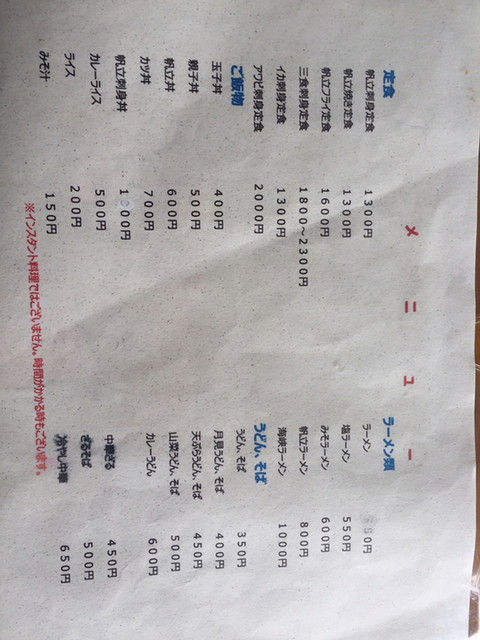 メニュー
定食
帆立刺身定食 1300円
帆立焼き定食 1300円
帆立フライ定食 1600円
三食刺身定食 1800～2300円
イカ刺身定食 1300円
アワビ刺身定食 2000円
ご飯物
玉子丼 400円
親子丼 500円
帆立丼 600円
カツ丼 700円
帆立刺身丼
カレーライス 500円
ライス 200円
みそ汁 150円
ラーメン類
ラーメン
塩ラーメン 550円
みそラーメン 600円
帆立ラーメン 800円
海峡ラーメン 1000円
うどん、そば
うどん、そば 350円
月見うどん、そば 400円
天ぷらうどん、そば 450円
山菜うどん、そば 500円
カレーうどん 600円
中華ざる 450円
ざるそば 500円
冷やし中華 650円
※インスタント料理ではございません。時間がかかる時もございます。